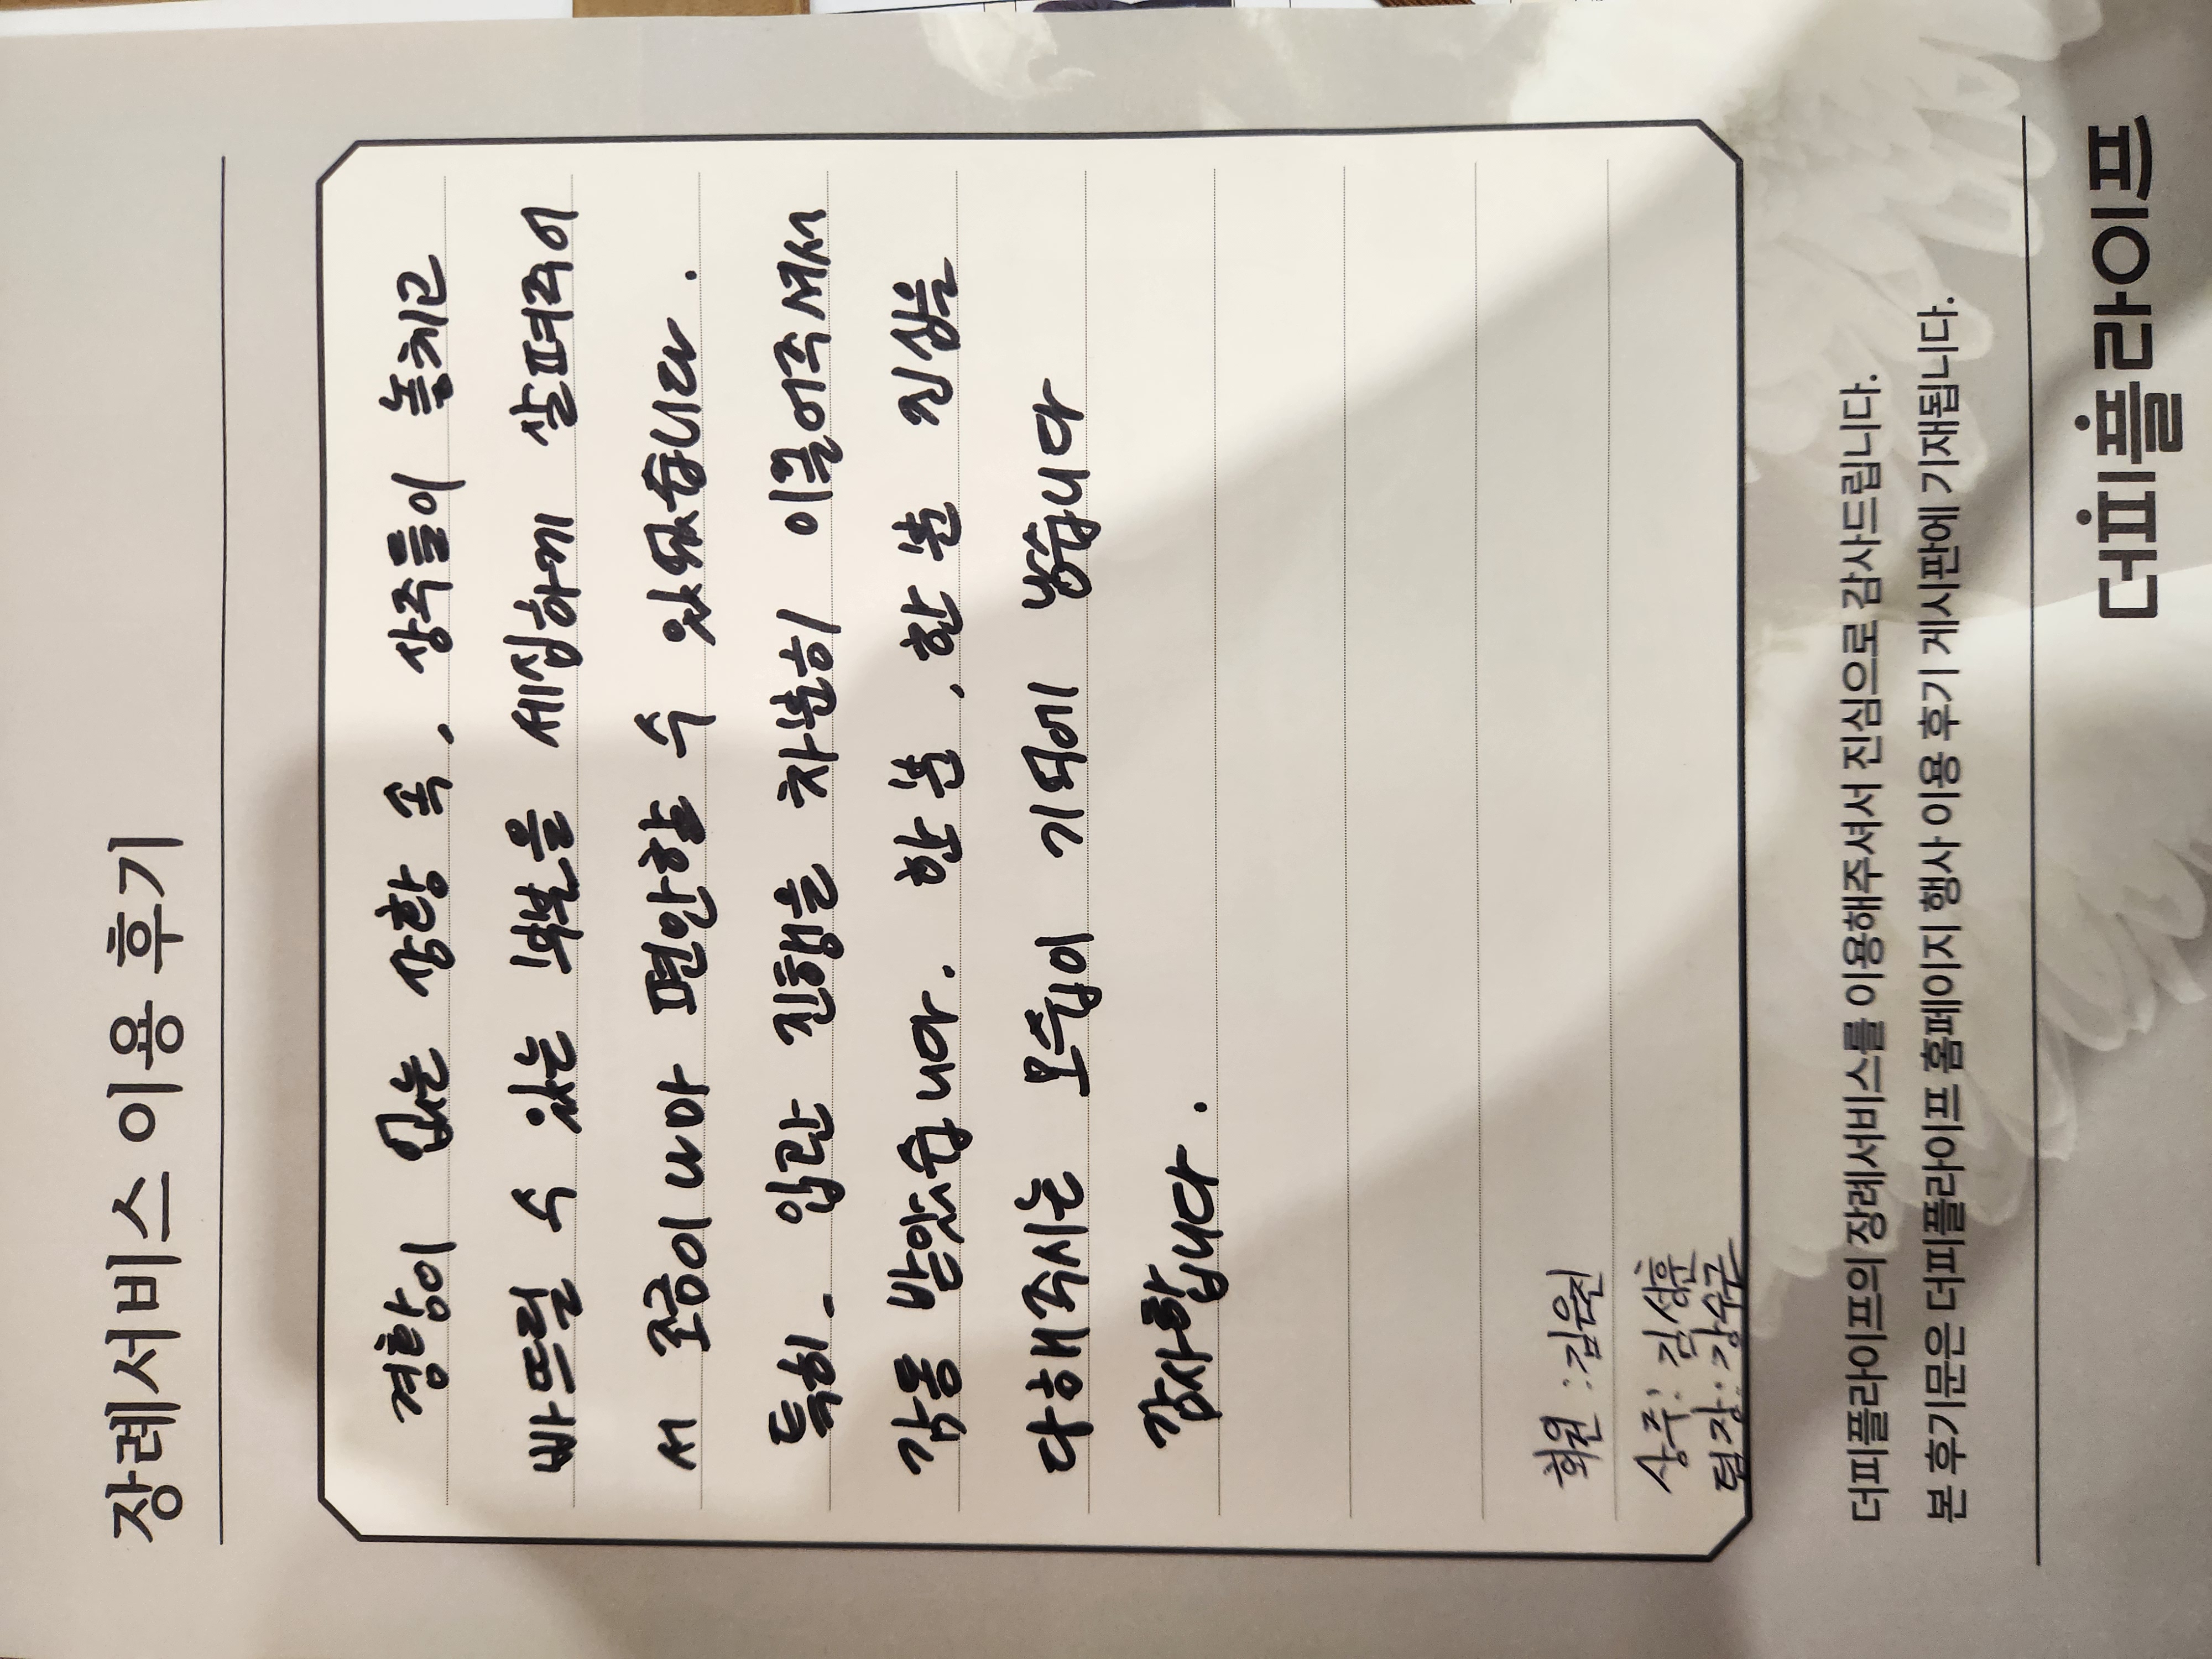 장례서비스 이용 후기
경황이 없는 상황 속, 상주들이 놓치고
빠뜨릴 수 있는 부분을 세심하게 살펴주어
서 조금이나마 편안할 수 있었습니다.
특히, 입관 진행을 차분히 이끌어주셔서
감동 받았습니다. 한 분, 한 분 진심을
다해주시는 모습이 기억에 남습니다
감사합니다.
회원 : 김윤진
상주 : 김성훈
팀장 : 강수근
더피플라이프의 장례서비스를 이용해주셔서 진심으로 감사드립니다.
본 후기문은 더피플라이프 홈페이지 행사 이용 후기 게시판에 기재됩니다.
더피플라이프